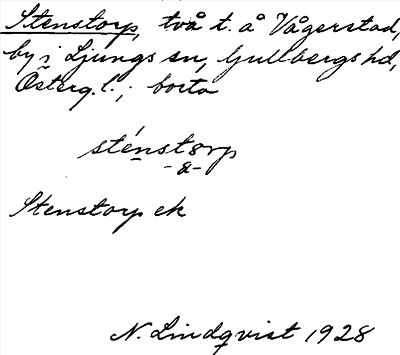 Stenstorp, två t. å Vågerstad,
by i Ljungs sn, Gullbergs hd,
Österg. l.; borta
sténstorp
-8-
Stenstorp ek
N. Lindqvist 1928